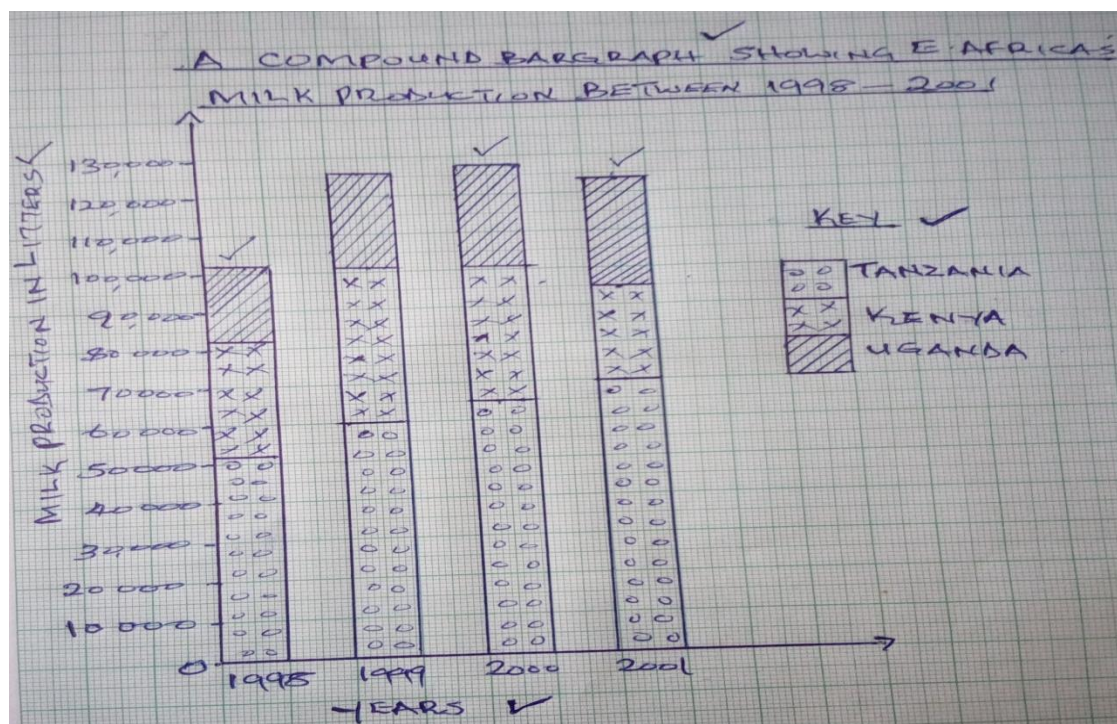 A COMPOUND BARGRAPH SHOWING E.AFRICA'S
MILK PRODUCTION BETWEEN 1998 - 2001
MILK PRODUCTION IN LITTERS
130,000
120,000
110,000
100,000
90,000
80 000
70 000
60 000
50 000
40 000
30,000
20 000
10 000
0
1998 1999 2000 2001
YEARS
KEY
TANZANIA
KENYA
UGANDA